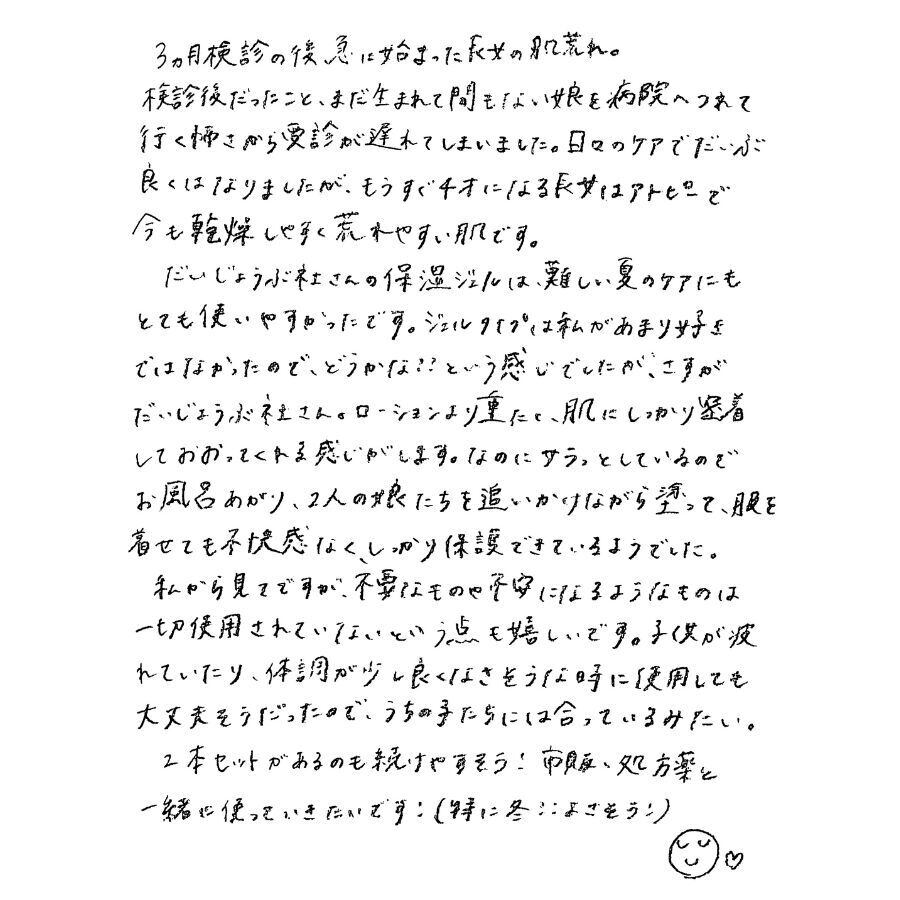 3ヵ月検診の後、急に始まった長女の肌荒れ。
検診後だったこと、まだ生まれて間もない娘を病院へつれて
行く怖さから受診が遅れてしまいました。日々のケアでだいぶ
良くはなりましたが、もうすぐ4才になる長女はアトピーで
今も乾燥しやすく荒れやすい肌です。
だいじょうぶ社さんの保湿ジェルは、難しい夏のケアにも
とても使いやすかったです。ジェルタイプは私があまり好き
ではなかったので、どうかな??という感じでしたが、さすが
だいじょうぶ社さん。ローションより重たく、肌にしっかり密着
しておおってくれる感じがします。なのにサラっとしているので
お風呂あがり、2人の娘たちを追いかけながら塗って、服を
着せても不快感なく、しっかり保護できているようでした。
私から見てですが、不要なものや不安になるようなものは
一切使用されていないという点も嬉しいです。子供が疲
れていたり、体調が少し良くなさそうな時に使用しても
大丈夫そうだったので、うちの子たちには合っているみたい。
2本セットがあるのも続けやすそう!市販、処方薬と
一緒に使っていきたいです!(特に冬!!よさそう!)